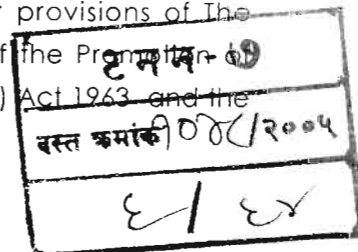 r provisions of The
f the Promotion of
) Act 1963 and the
ट म म - ७
दस्त क्रमांक १०४८/२००५
६/ ६४